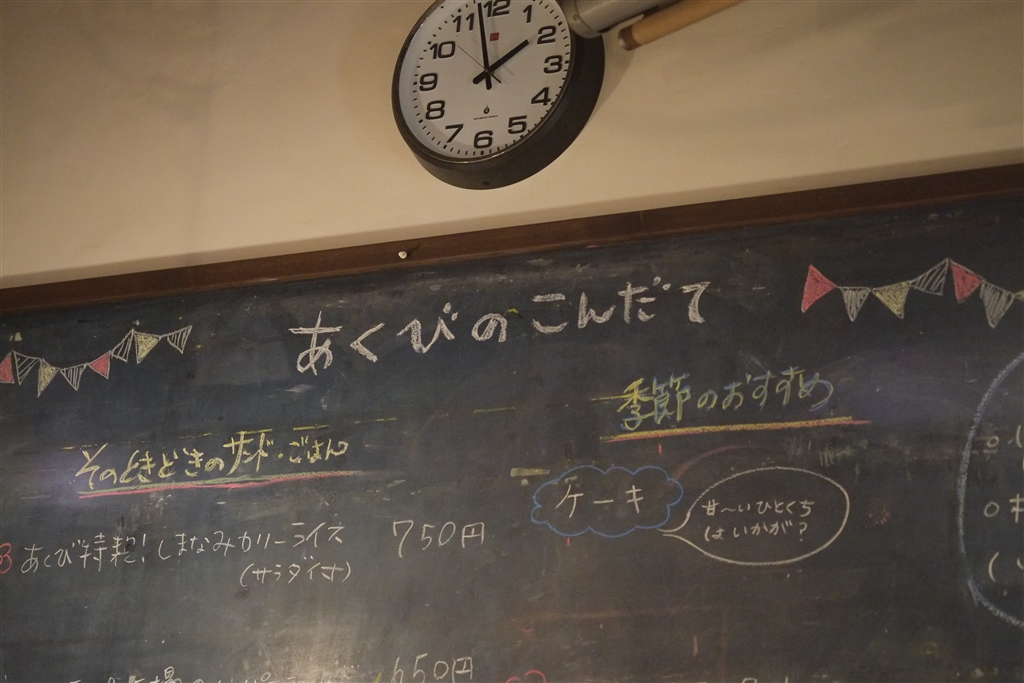 12
1
2
3
4
5
6
7
8
9
10
11
あくびのこんだて
季節のおすすめ
そのときどきのサンド・ごはん
ケーキ
甘〜いひとくち
はいかがか?
あくび特製! しまなみカリーライス 750円
(サラダ付)
650円